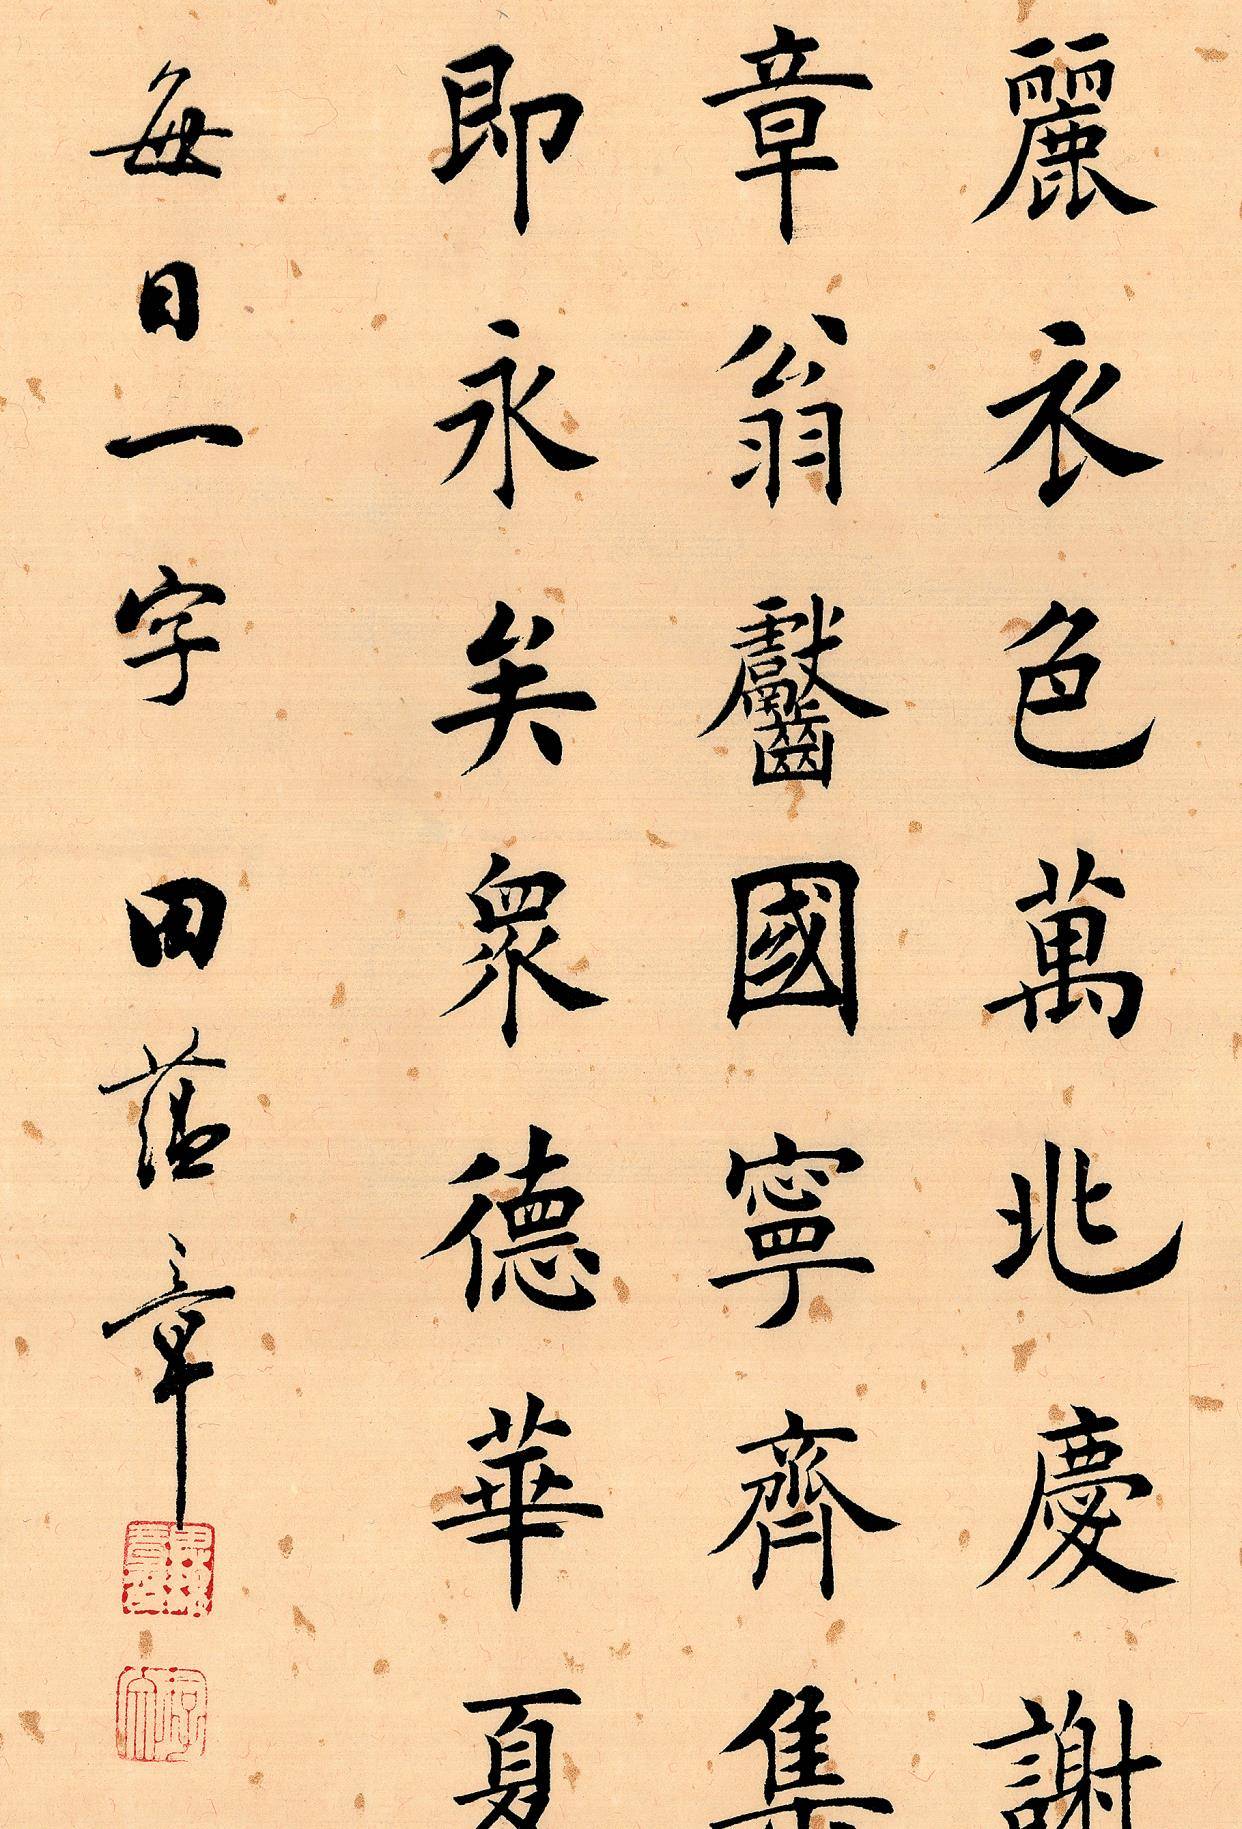 麗衣色萬兆慶謝
章翁齾國寧齊集
即永矣衆德華夏
每日一字 田蘊章